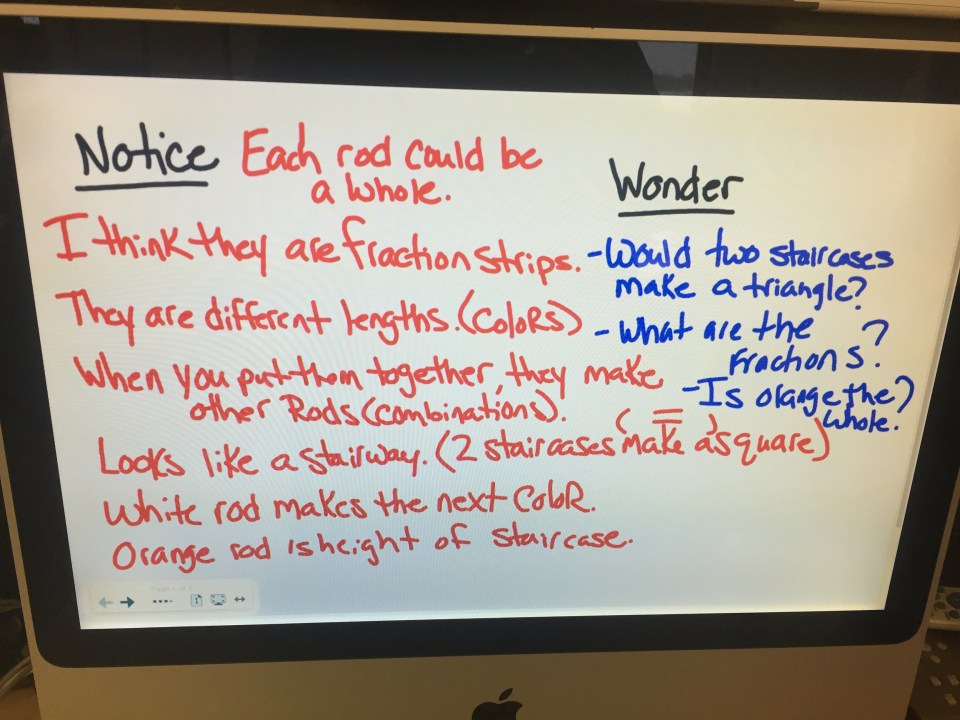 Notice Each rod could be
a whole.
I think they are fraction strips.
They are different lengths. (COLORS)
When you put them together, they make
other Rods (combinations).
Looks like a stairway. (2 staircases make a square)
White rod makes the next COLOR.
Orange rod is height of staircase.
Wonder
- Would two staircases
make a triangle?
- What are the
fractions?
- Is orange the
whole?